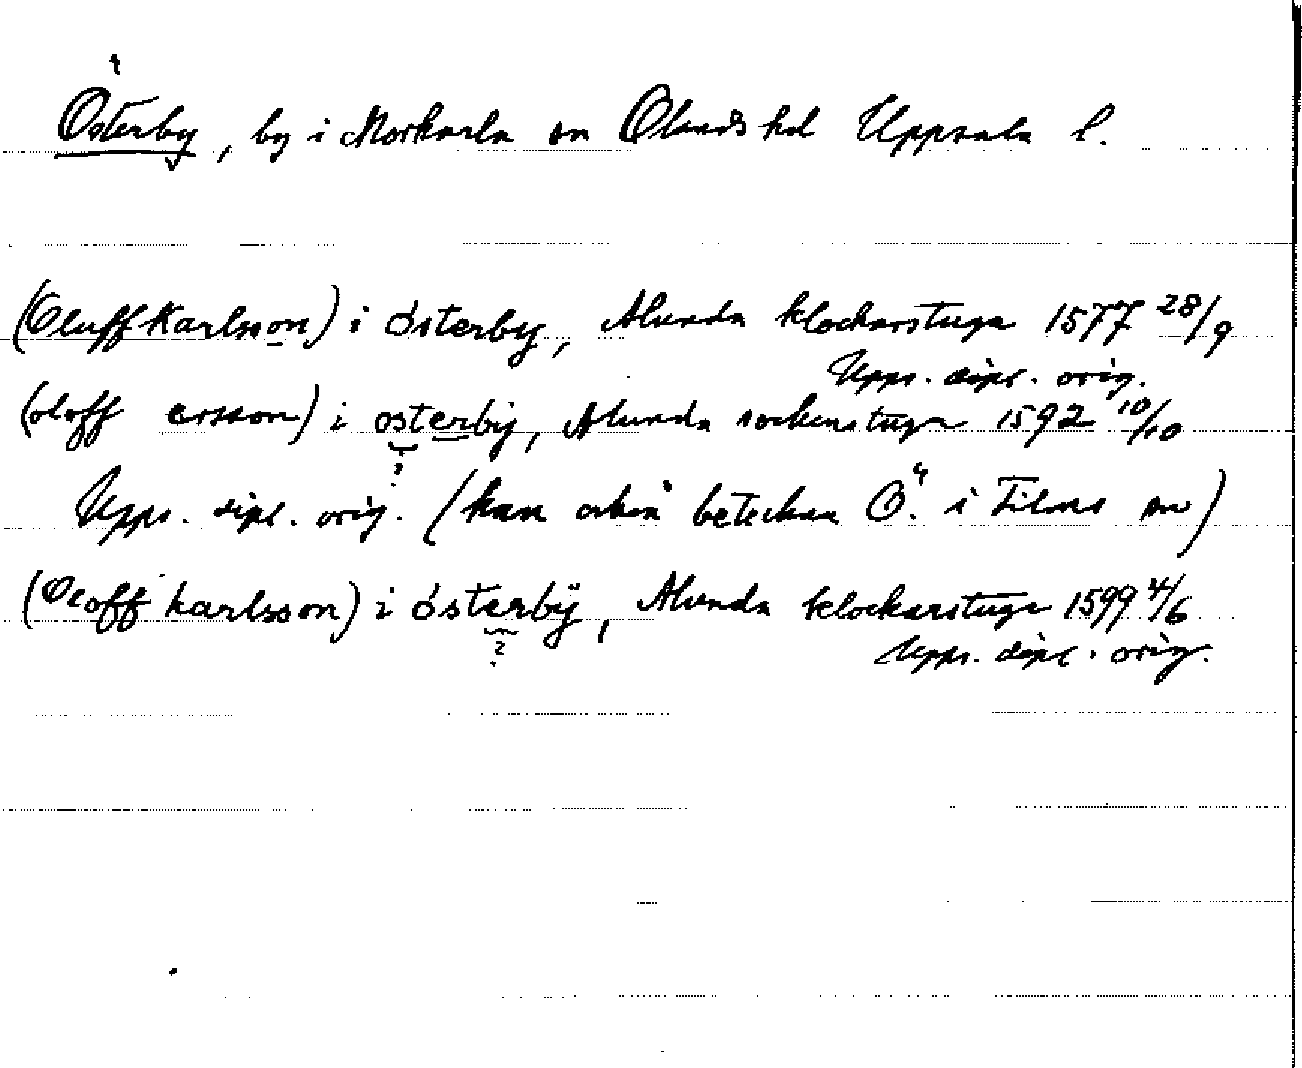 Österby, by i Morkarla sn Olands hd Uppsala l.
(Oluff Karlsson) i österby, Alunda klockarstuga 1577 28/9
Upps. dipl. orig.
(oloff ersson) i osterbÿ, Alunda sockenstuga 1592 10/10
?
Upps. dipl. orig. (kan också beteckna Ö. i Films sn)
(Oloff karlsson) i österbÿ, Alunda klockarstuga 1599 4/6
?
Upps. dipl. orig.